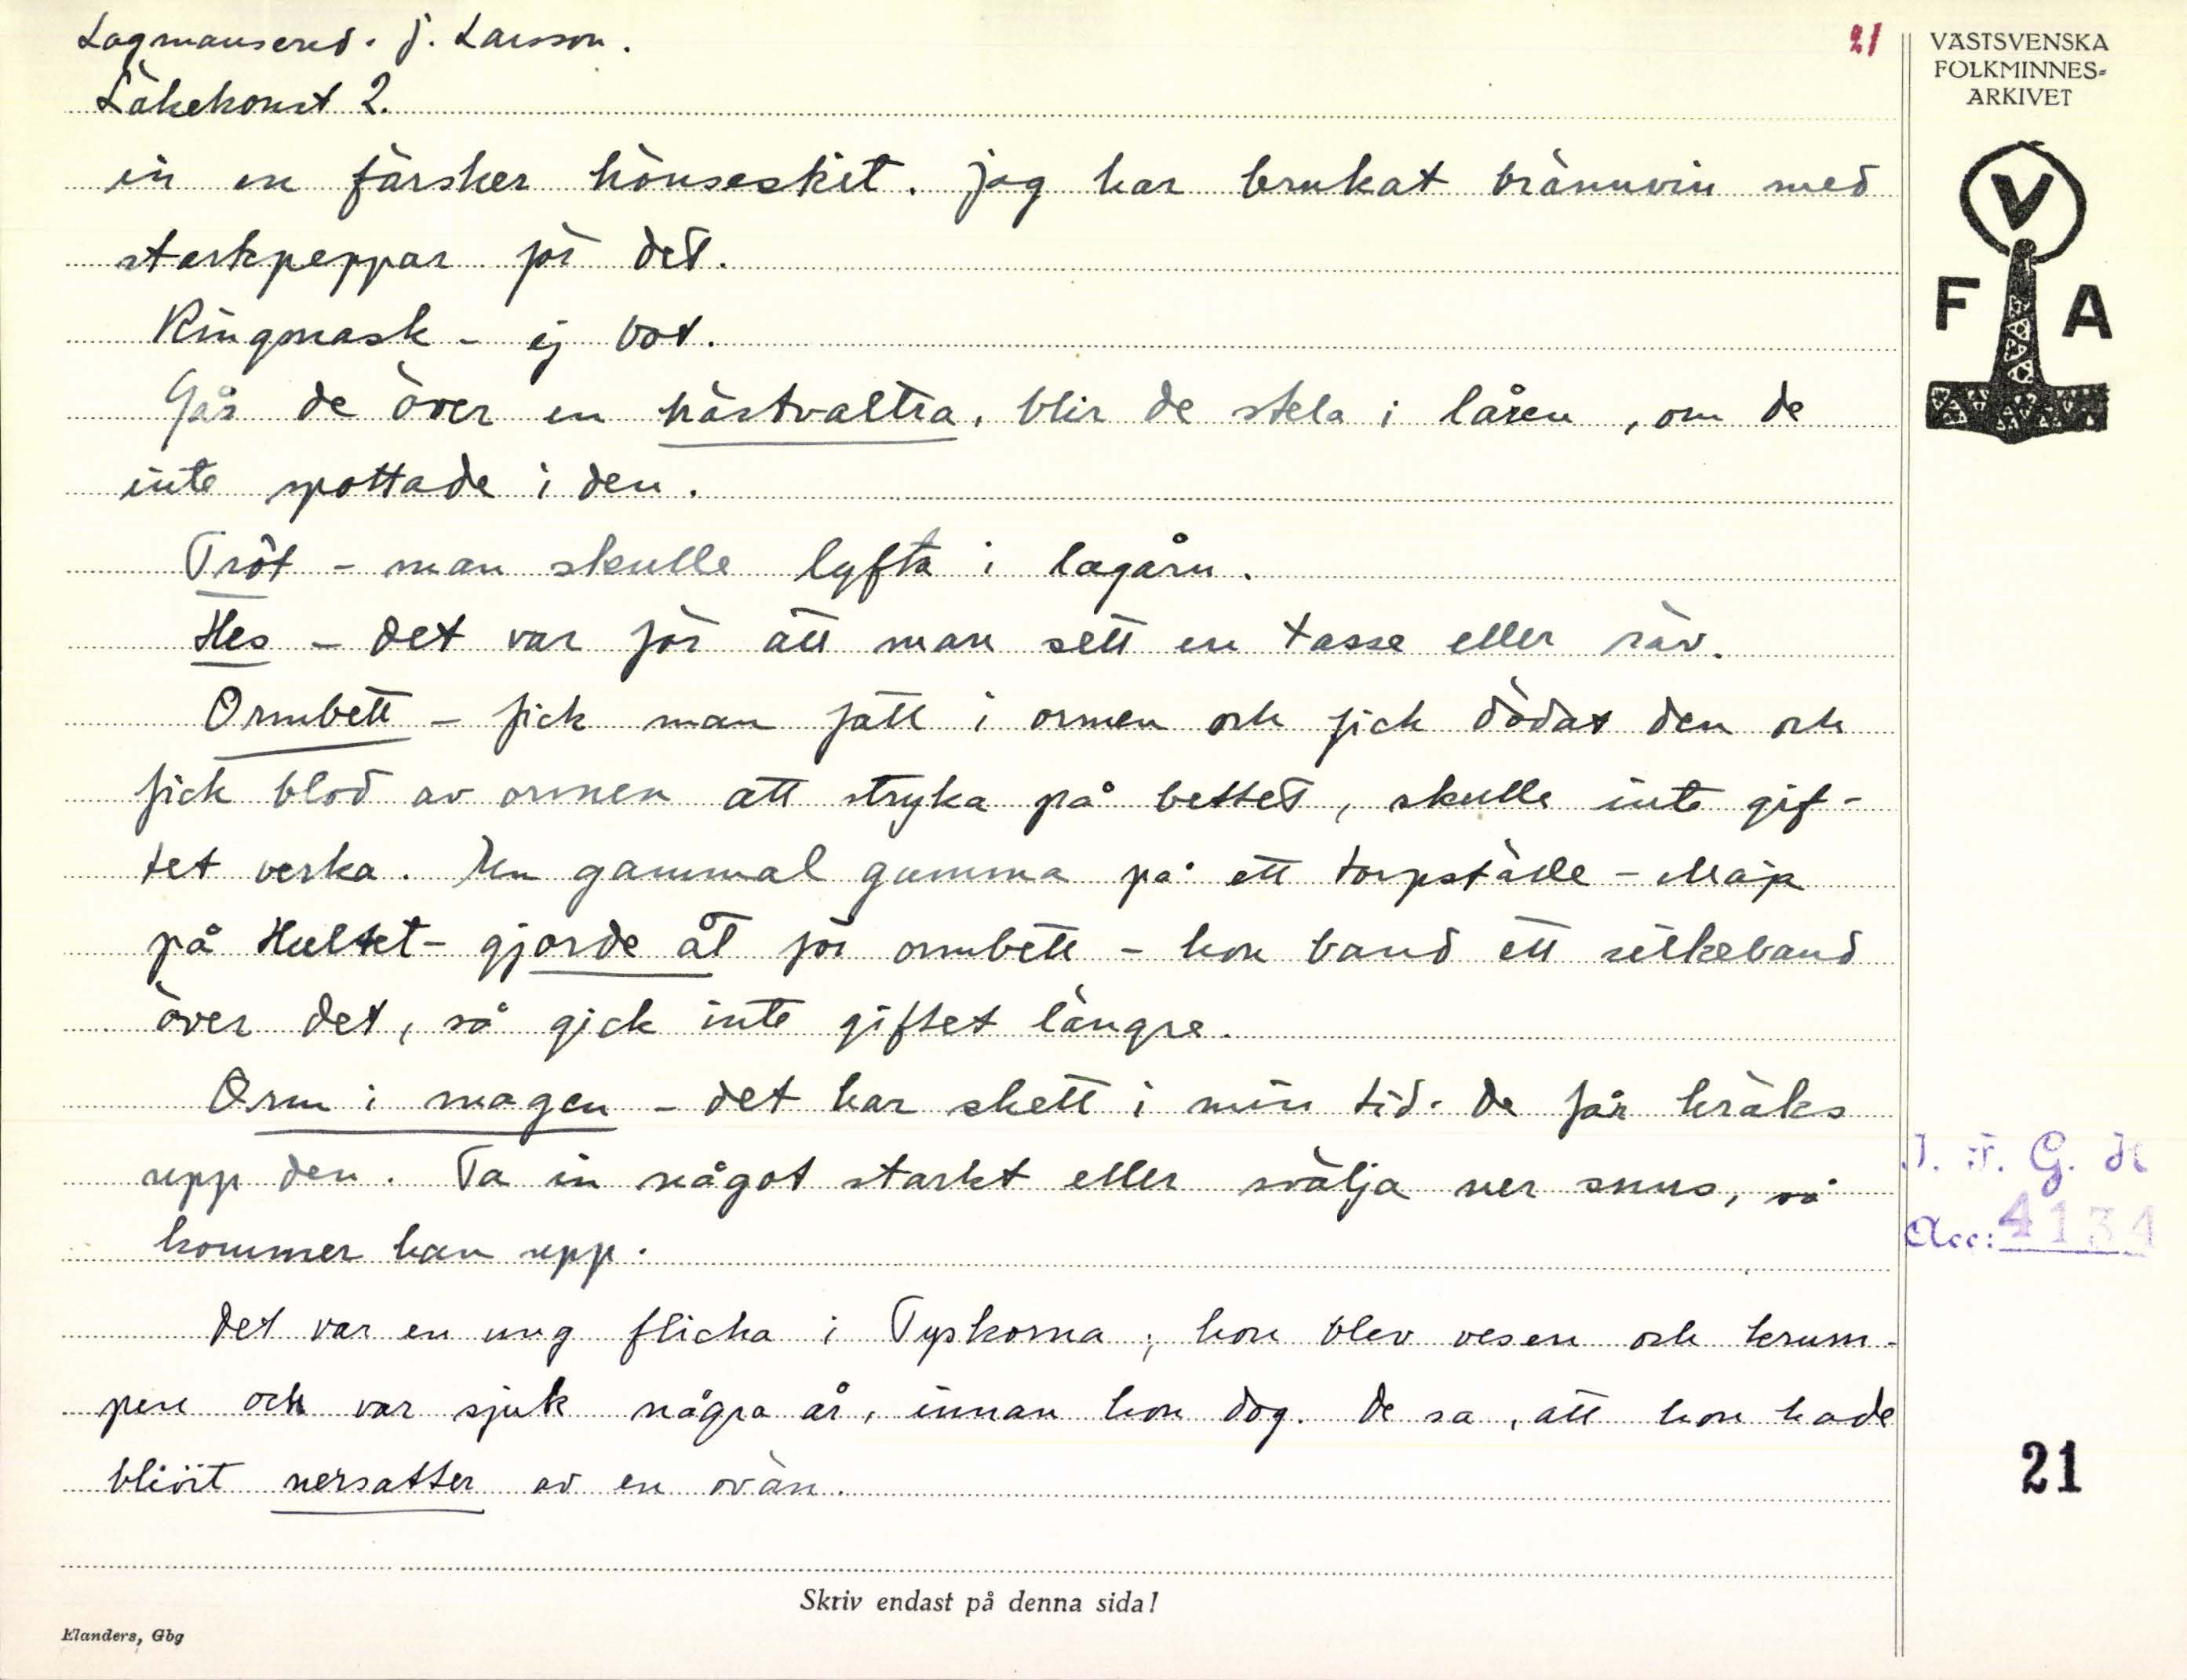 Lagmansered. J. Larsson.
21
Läkekonst 2.
in en färsker hönseskit. Jag har brukat brännvin med
starkpeppar för det.
Ringmask - ej bot.
Går de över en hästvaltra, blir de stela i låren, om de
inte spottade i den.
Tröt - man skulle lyfta i lagårn.
Hes - det var för att man sett en tasse eller räv.
Ormbett - fick man fatt i ormen och fick dödat den och
fick blod av ormen att stryka på bettet, skulle inte gif-
tet verka. En gammal gumma på ett torpställe - Maja
på Hultet - gjorde åt för ormbett - hon band ett silkeband
över det, så gick inte giftet längre.
Orm i magen - det har skett i min tid. De får kräks
upp den. Ta in något starkt eller svälja ner snus, så
kommer han upp.
Det var en ung flicka i Tyskorna, hon blev vesen och krum-
pen och var sjuk några år, innan hon dog. De sa, att hon hade
blivit nersatter av en ovän.
Skriv endast på denna sida!
Elanders, Gbg
VÄSTSVENSKA
FOLKMINNES-
ARKIVET
V
F A
I. F. G. H
Acc: 4134
21